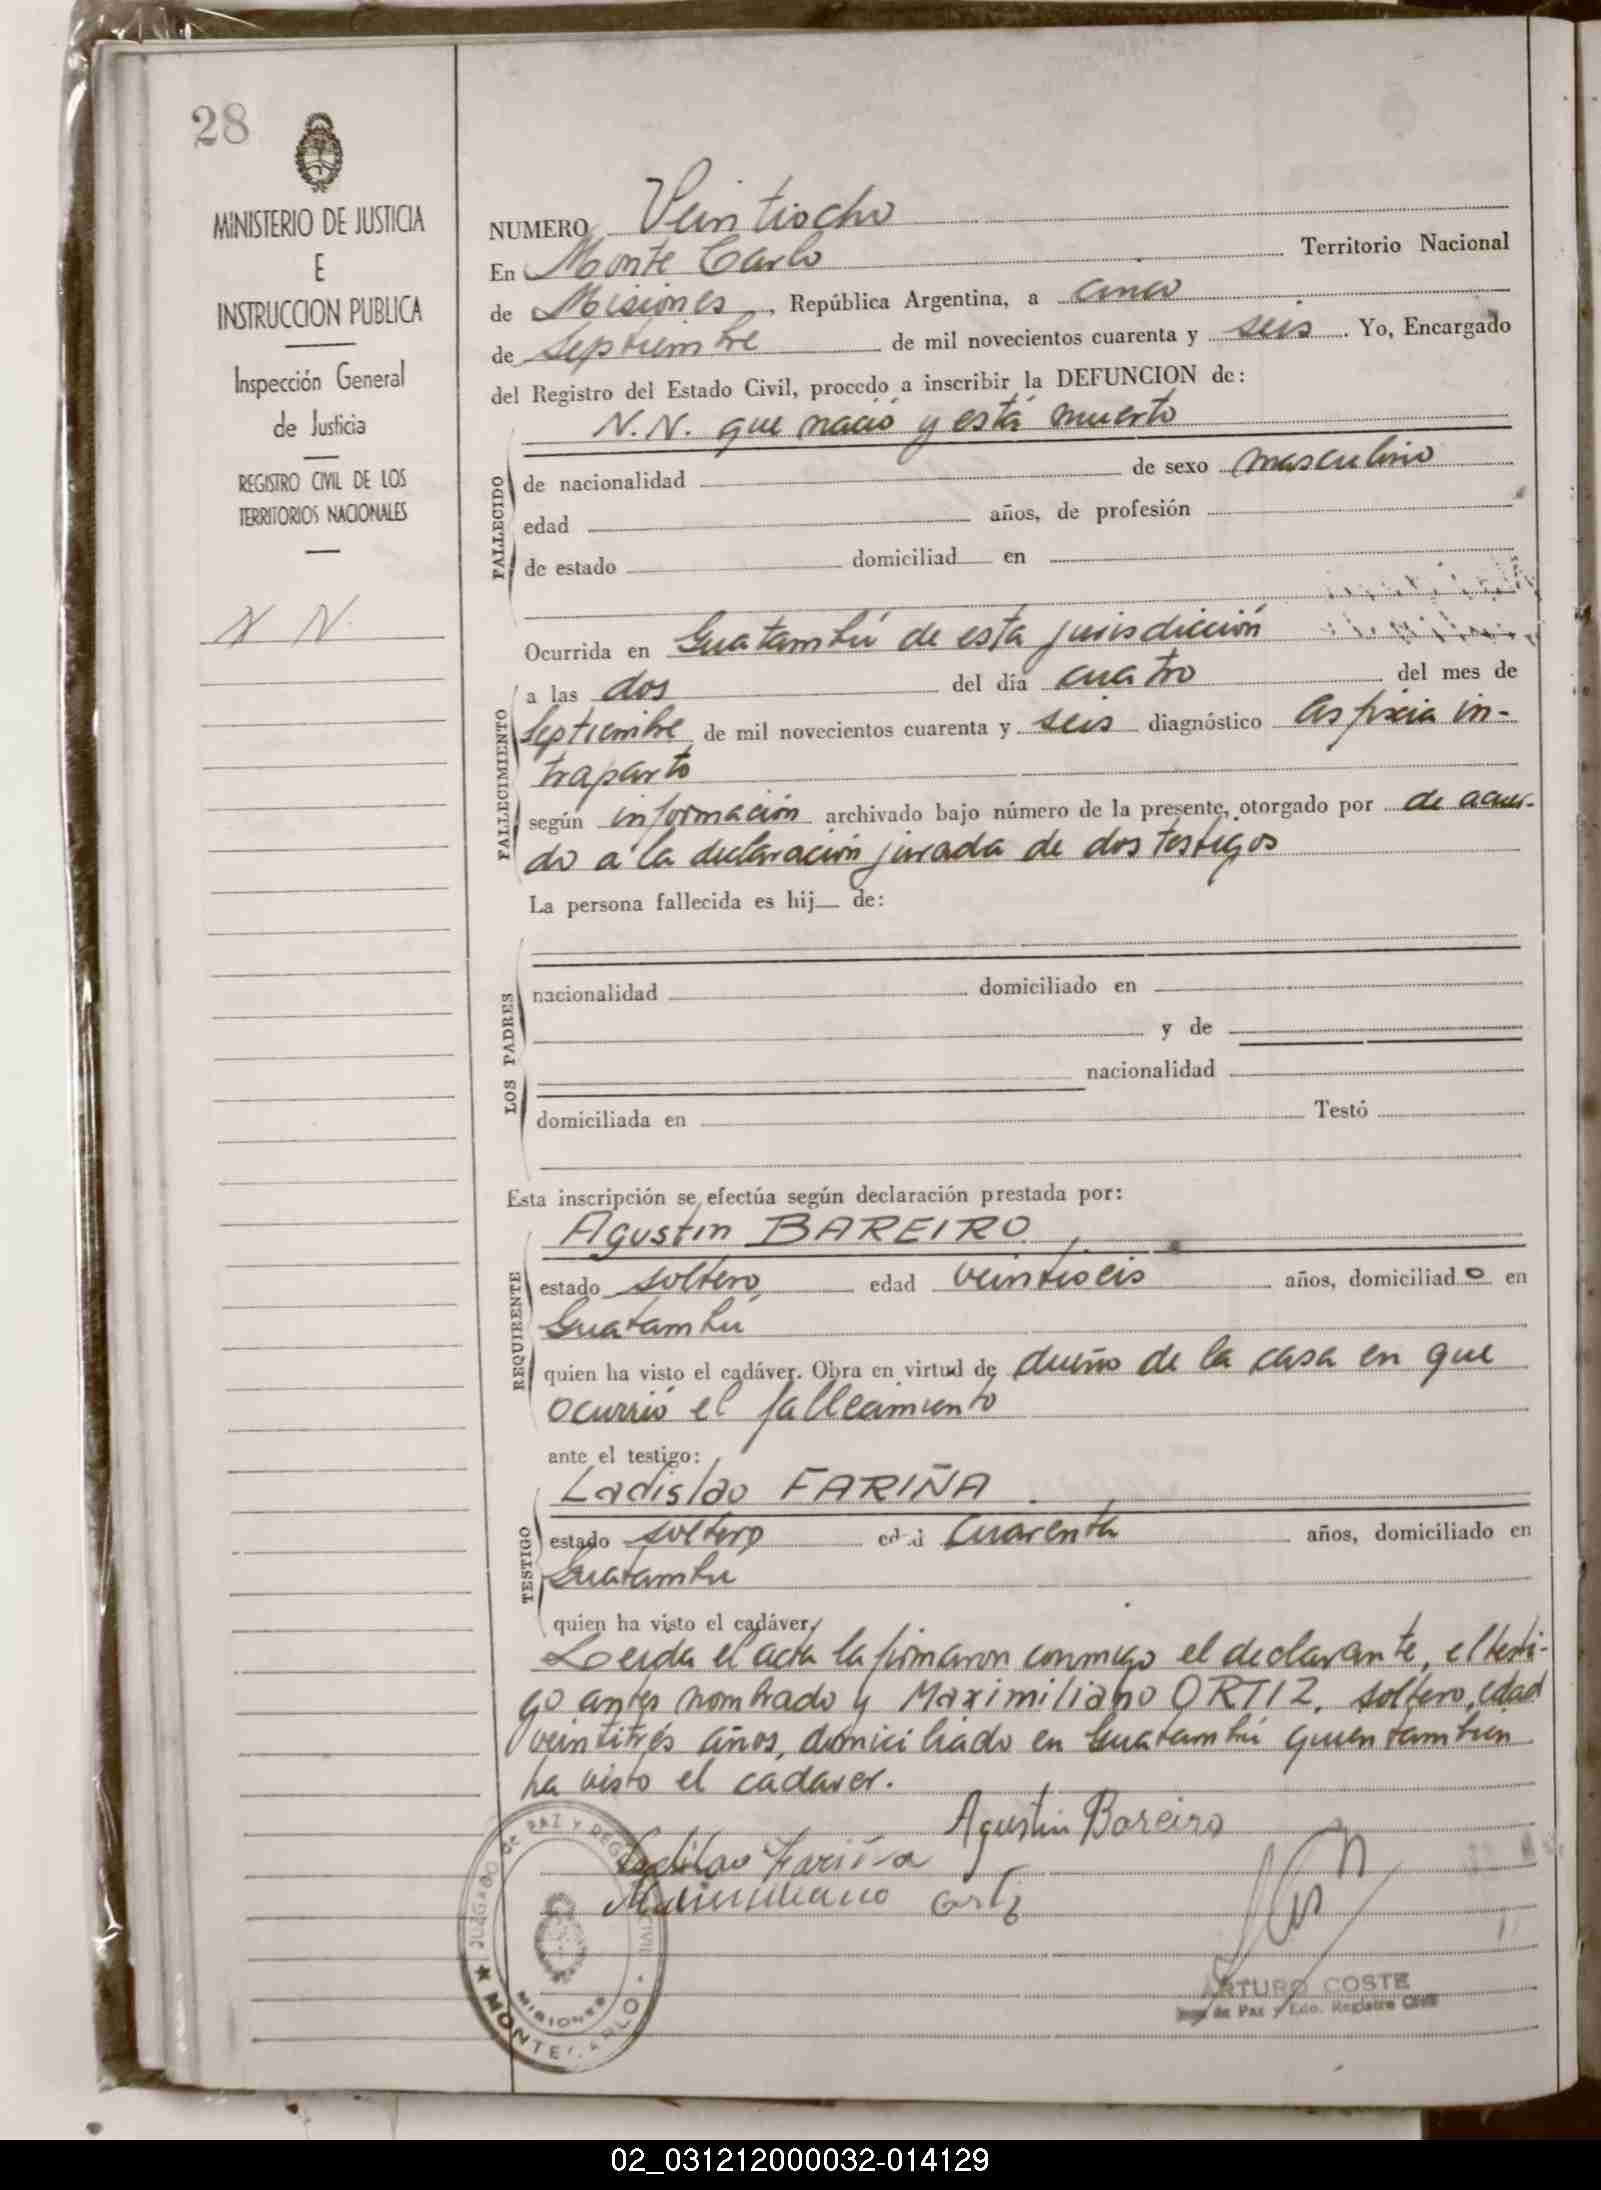 28
MINISTERIO DE JUSTICIA
E
INSTRUCCION PUBLICA
Inspección General
de Justicia
REGISTRO CIVIL DE LOS
TERRITORIOS NACIONALES
N N.
NUMERO Veintiocho
En Monte Carlo Territorio Nacional
de Misiones, República Argentina, a cinco
de Septiembre de mil novecientos cuarenta y seis. Yo, Encargado
del Registro del Estado Civil, procedo a inscribir la DEFUNCION de:
N.N. que nació y está muerto
FALLECIDO
de nacionalidad de sexo masculino
edad años, de profesión
de estado domiciliad en
Ocurrida en Guatambú de esta jurisdicción
FALLECIMIENTO
a las dos del día cuatro del mes de
Septiembre de mil novecientos cuarenta y seis diagnóstico Asfixia in-
traparto
según información archivado bajo número de la presente, otorgado por de acuer-
do a la declaración jurada de dos testigos
La persona fallecida es hij de:
LOS PADRES
nacionalidad domiciliado en
y de
nacionalidad
domiciliada en Testó
Esta inscripción se efectúa según declaración prestada por:
Agustin BAREIRO
REQUIRENTE
estado soltero edad veintiseis años, domiciliado en
Guatambú
quien ha visto el cadáver. Obra en virtud de dueño de la casa en que
ocurrió el fallecimiento
ante el testigo:
Ladislao FARIÑA
TESTIGO
estado soltero edad cuarenta años, domiciliado en
Guatambu
quien ha visto el cadáver,
Leida el acta la firmaron conmigo el declarante, el testi-
go antes nombrado y Maximiliano ORTIZ, soltero, edad
veintitrés años, domiciliado en Guatambú quien también
ha visto el cadaver.
Agustin Bareiro
Ladilao Fariña
Maximiliano Ortiz
JUZGADO DE PAZ Y REGISTRO CIVIL
MISIONES
MONTECARLO
ARTURO COSTE
Juez de Paz y Edo. Registro Civil
02_031212000032-014129